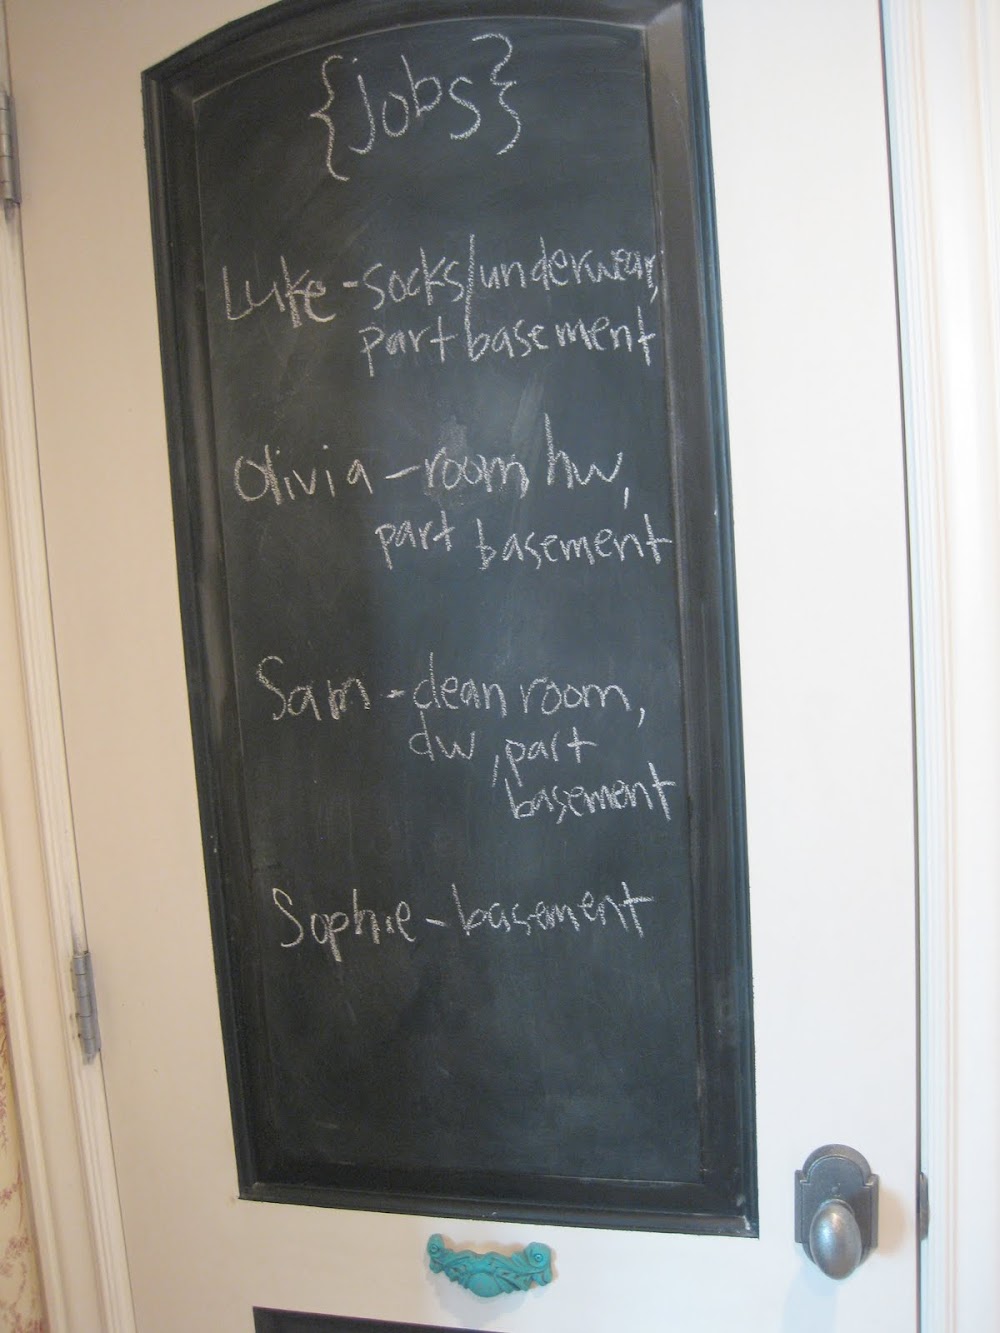 {jobs}
Luke - socks/underwear,
part basement
Olivia - room, hw,
part basement
Sam - clean room,
dw, part
basement
Sophie - basement